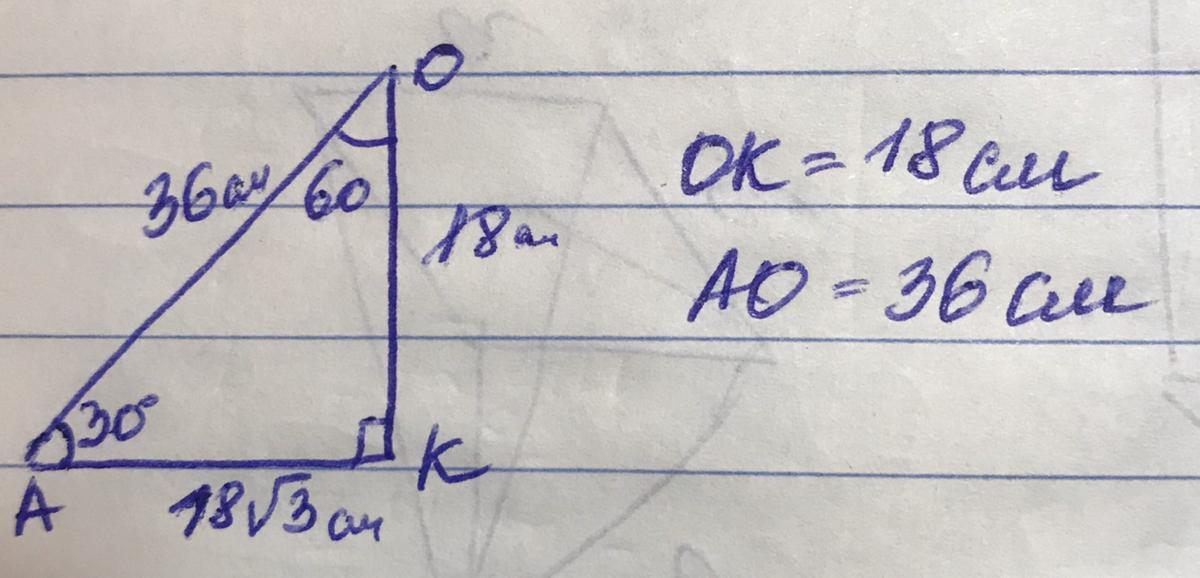 O
36см
60
18см
OK = 18 см
AO = 36 см
30°
A
K
18√3 см